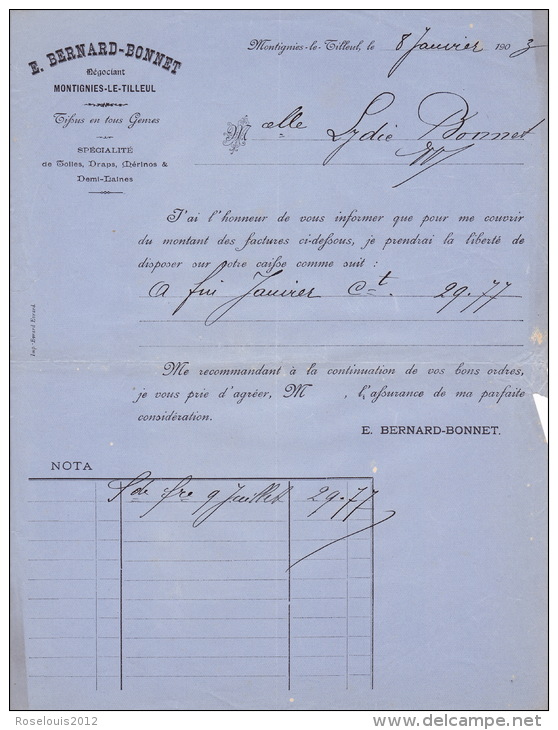 E. BERNARD-BONNET
Négociant
MONTIGNIES-LE-TILLEUL
Tissus en tous Genres
SPÉCIALITÉ
de Toiles, Draps, Mérinos &
Demi-Laines
Montignies-le-Tilleul, le 8 Janvier 1903
Melle Lydie Bonnet
J'ai l'honneur de vous informer que pour me couvrir
du montant des factures ci-dessous, je prendrai la liberté de
disposer sur votre caisse comme suit :
A fin Janvier Ct. 29.77
Imp. Evrard Evrard.
Me recommandant à la continuation de vos bons ordres,
je vous prie d'agréer, M , l'assurance de ma parfaite
considération.
E. BERNARD-BONNET.
NOTA
Sde fre 9 Juillet 29.77
Roselouis2012
www.delcampe.net